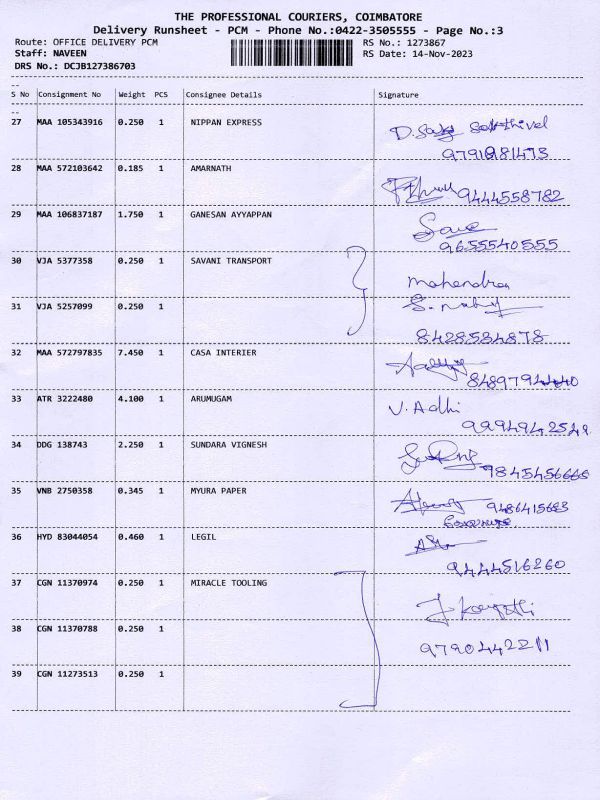 THE PROFESSIONAL COURIERS, COIMBATORE
Delivery Runsheet - PCM - Phone No.:0422-3505555 - Page No.:3
Route: OFFICE DELIVERY PCM RS No.: 1273867
Staff: NAVEEN RS Date: 14-Nov-2023
DRS No.: DCJB127386703
--
S No Consignment No Weight PCS Consignee Details Signature
--
27 MAA 105343916 0.250 1 NIPPAN EXPRESS
28 MAA 572103642 0.185 1 AMARNATH
9444558782
29 MAA 106837187 1.750 1 GANESAN AYYAPPAN
9655540555
30 VJA 5377358 0.250 1 SAVANI TRANSPORT
mahendra
31 VJA 5257099 0.250 1
8428534878
32 MAA 572797835 7.450 1 CASA INTERIER
33 ATR 3222480 4.100 1 ARUMUGAM V. Adhi
9994942549
34 DDG 138743 2.250 1 SUNDARA VIGNESH
9845456665
35 VNB 2750358 0.345 1 MYURA PAPER
36 HYD 83044054 0.460 1 LEGIL
9444516260
37 CGN 11370974 0.250 1 MIRACLE TOOLING
38 CGN 11370788 0.250 1
9790442211
39 CGN 11273513 0.250 1